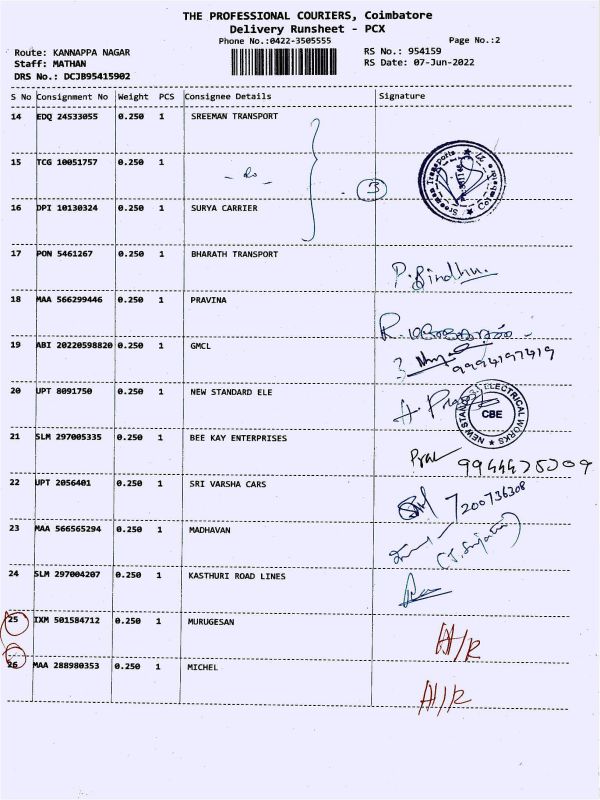 THE PROFESSIONAL COURIERS, Coimbatore
Delivery Runsheet - PCX
Phone No.:0422-3505555
Page No.:2
Route: KANNAPPA NAGAR
RS No.: 954159
Staff: MATHAN
RS Date: 07-Jun-2022
DRS No.: DCJB95415902
S No Consignment No Weight PCS Consignee Details Signature
14 EDQ 24533055 0.250 1 SREEMAN TRANSPORT
15 TCG 10051757 0.250 1
- do -
3
Sreeman Transports
Coimbatore
16 DPI 10130324 0.250 1 SURYA CARRIER
17 PON 5461267 0.250 1 BHARATH TRANSPORT
P. Bindhu.
18 MAA 566299446 0.250 1 PRAVINA
R.
19 ABI 20220598820 0.250 1 GMCL
9994197419
20 UPT 8091750 0.250 1 NEW STANDARD ELE
NEW STANDARD ELECTRICAL WORKS
CBE
21 SLM 297005335 0.250 1 BEE KAY ENTERPRISES
22 UPT 2056401 0.250 1 SRI VARSHA CARS
7200736308
23 MAA 566565294 0.250 1 MADHAVAN
24 SLM 297004207 0.250 1 KASTHURI ROAD LINES
25 IXM 501584712 0.250 1 MURUGESAN
A/R
26 MAA 288980353 0.250 1 MICHEL
A/R